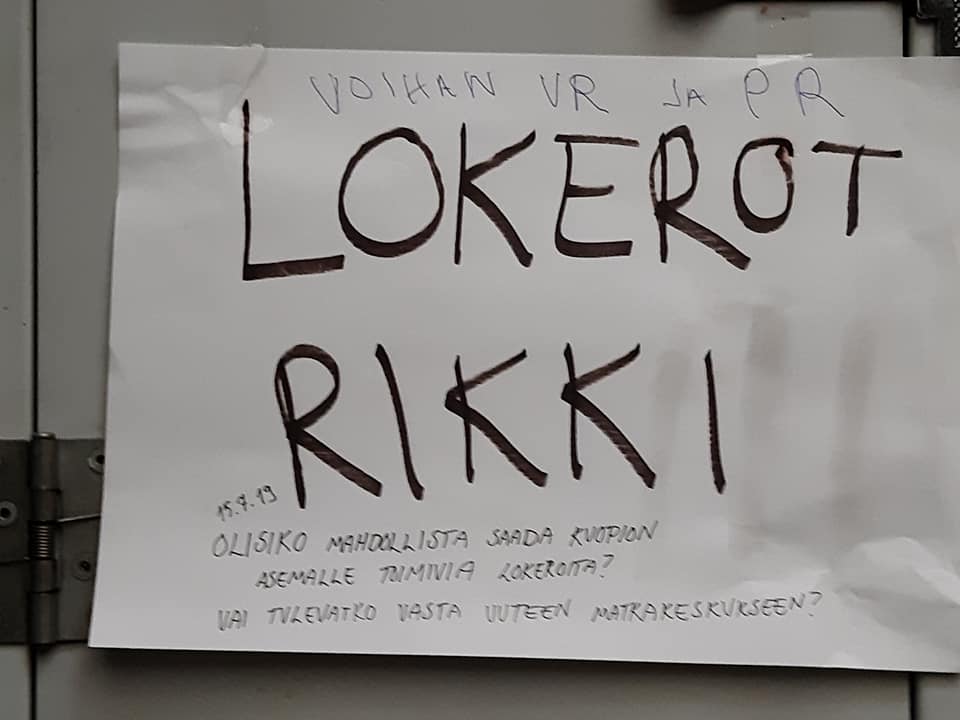 VOIHAN VR JA PR
LOKEROT
RIKKI
15.7.19
OLISIKO MAHDOLLISTA SAADA KUOPION
ASEMALLE TOIMIVIA LOKEROITA?
VAI TULEVATKO VASTA UUTEEN MATKAKESKUKSEEN?